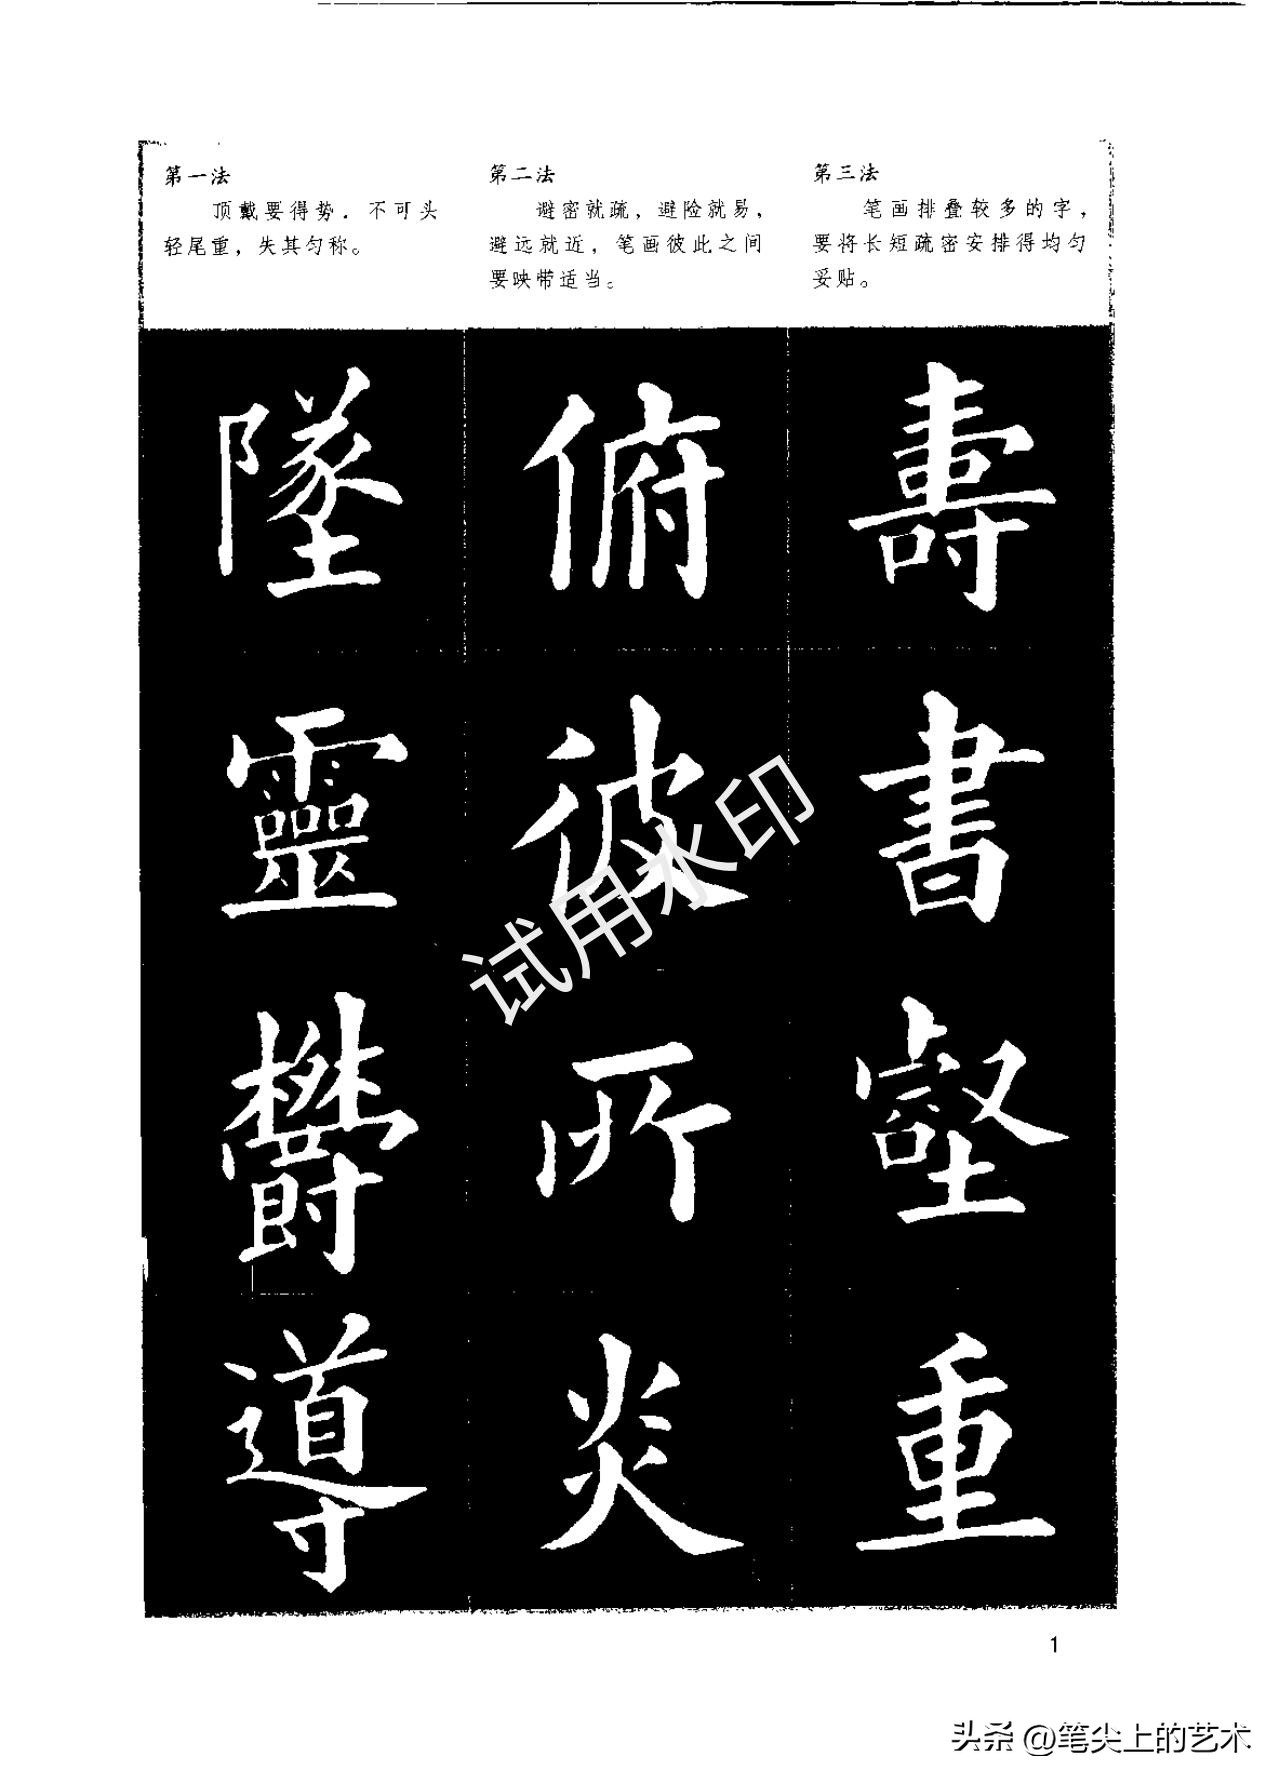 第一法
顶戴要得势．不可头
轻尾重，失其匀称。
第二法
避密就疏，避险就易，
避远就近，笔画彼此之间
要映带适当。
第三法
笔画排叠较多的字，
要将长短疏密安排得均匀
妥贴。
墜
靈
鬱
導
俯
彼
所
炎
壽
書
壑
重
试用水印
1
头条 @笔尖上的艺术